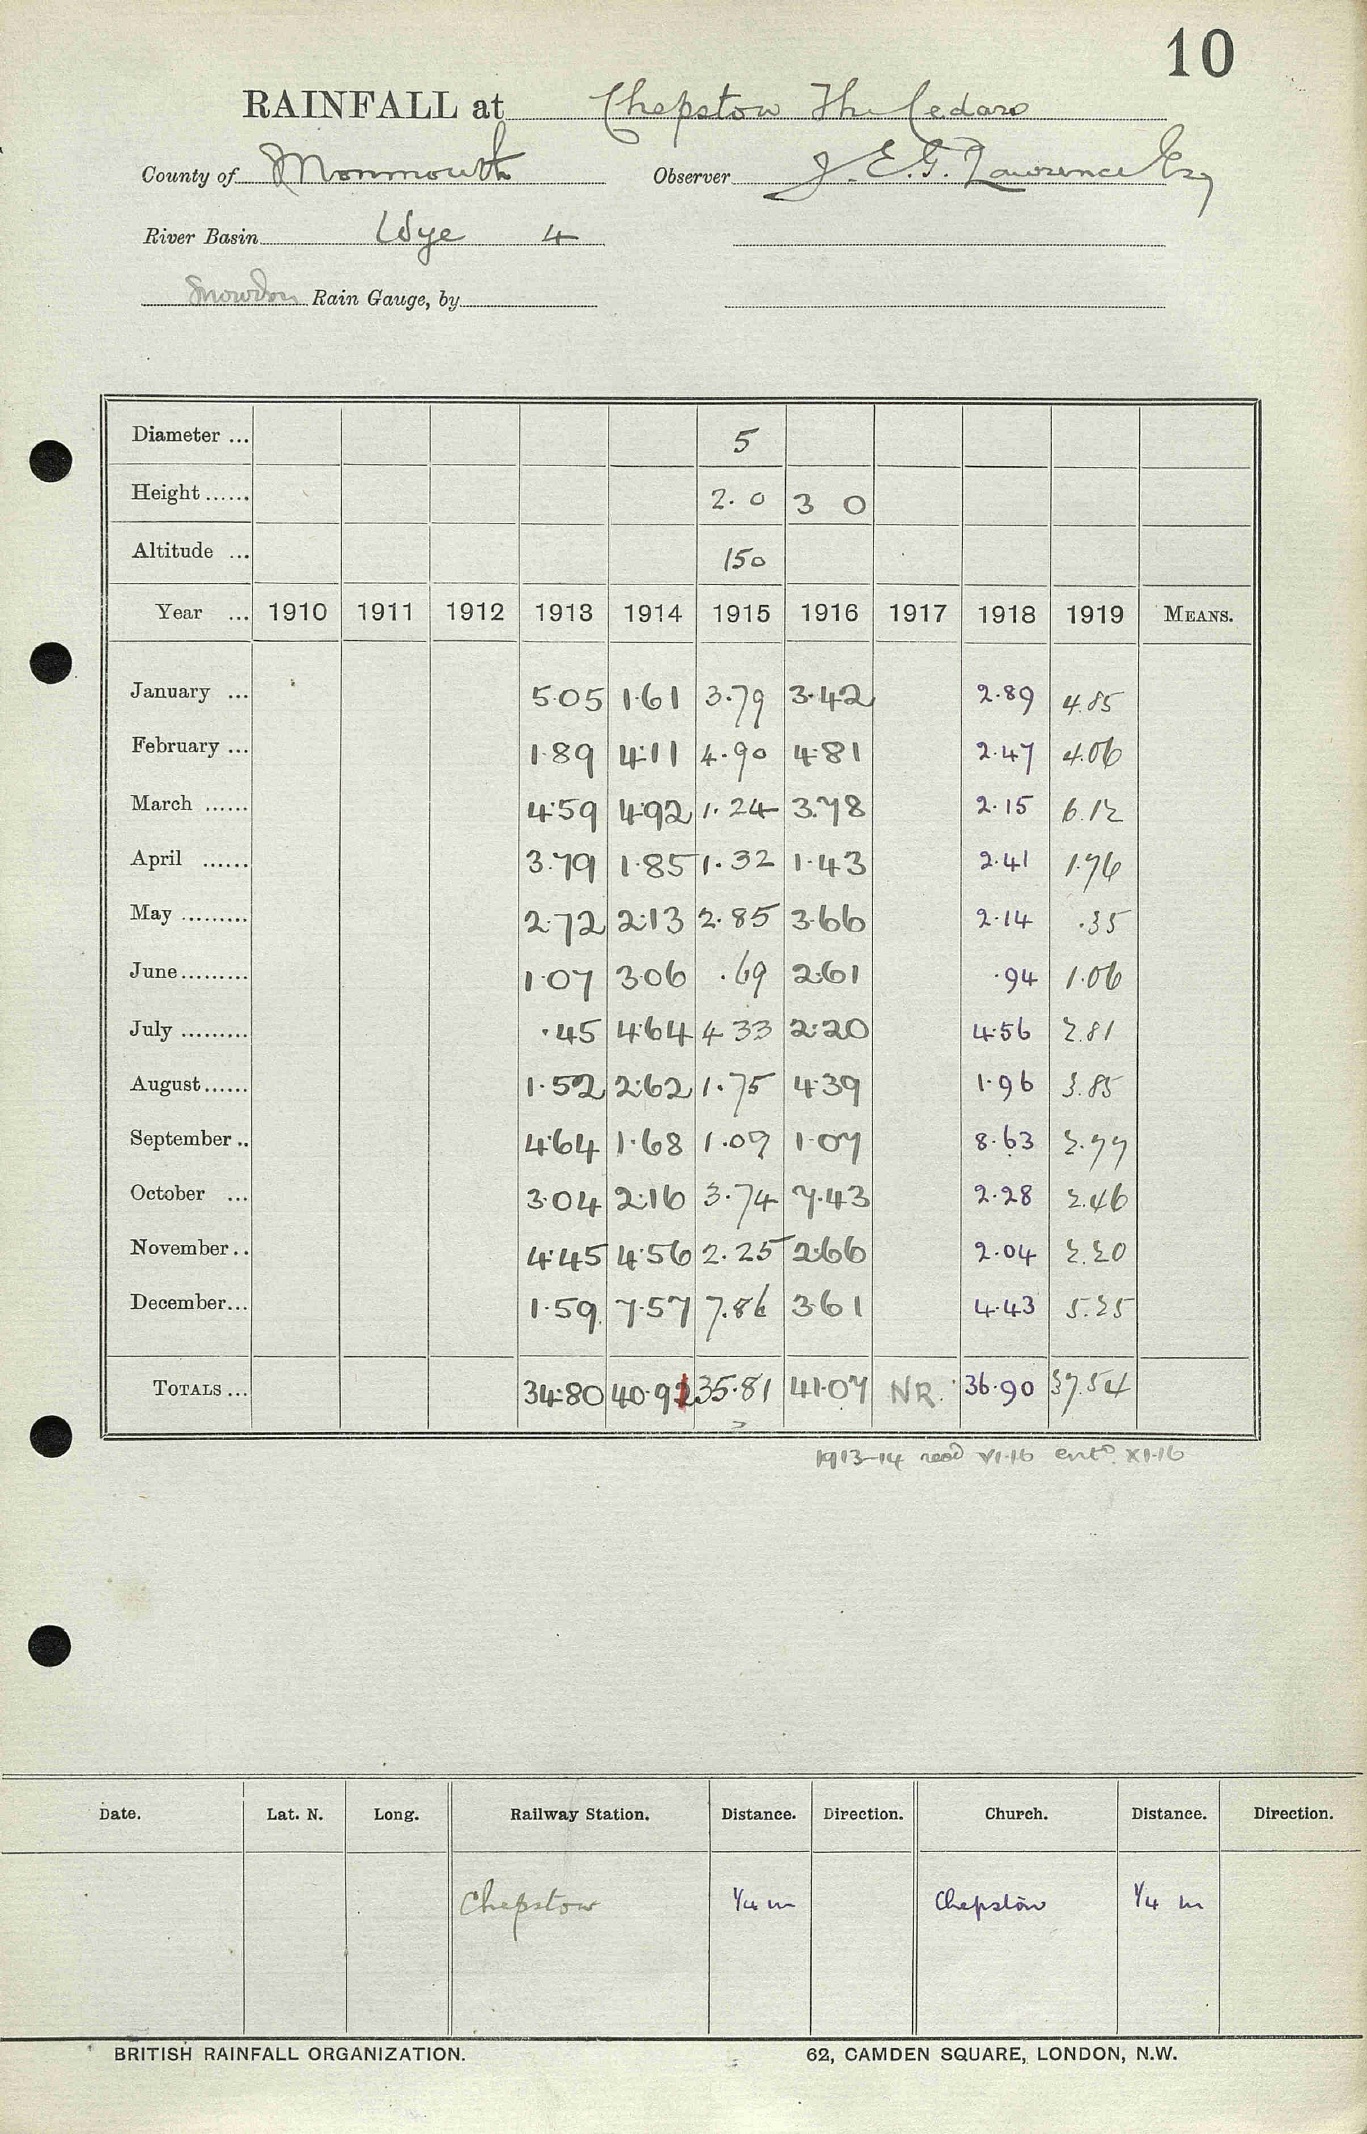 10
RAINFALL at Chepstow The Cedars
County of Monmouth Observer J. E. G. Lawrence Esq
River Basin Wye 4
Snowdon Rain Gauge, by
Diameter ... 5
Height ...... 2.0 3 0
Altitude ... 150
Year ... 1910 1911 1912 1913 1914 1915 1916 1917 1918 1919 MEANS.
January ... 5.05 1.61 3.79 3.42 2.89 4.85
February ... 1.89 4.11 4.90 4.81 2.47 4.06
March ...... 4.59 4.92 1.24 3.78 2.15 6.12
April ...... 3.79 1.85 1.32 1.43 2.41 1.76
May ......... 2.72 2.13 2.85 3.66 2.14 .35
June ......... 1.07 3.06 .69 2.61 .94 1.06
July ......... .45 4.64 4.33 2.20 4.56 2.81
August ...... 1.52 2.62 1.75 4.39 1.96 3.85
September .. 4.64 1.68 1.09 1.07 8.63 2.77
October ... 3.04 2.16 3.74 7.43 2.28 2.46
November .. 4.45 4.56 2.25 2.66 2.04 2.20
December... 1.59 7.57 7.86 3.61 4.43 5.25
TOTALS ... 34.80 40.91 35.81 41.07 NR. 36.90 37.54
1913-14 recd VI.16 entd. XI.16
Date. Lat. N. Long. Railway Station. Distance. Direction. Church. Distance. Direction.
Chepstow 1/4 m Chepstow 1/4 m
BRITISH RAINFALL ORGANIZATION. 62, CAMDEN SQUARE, LONDON, N.W.